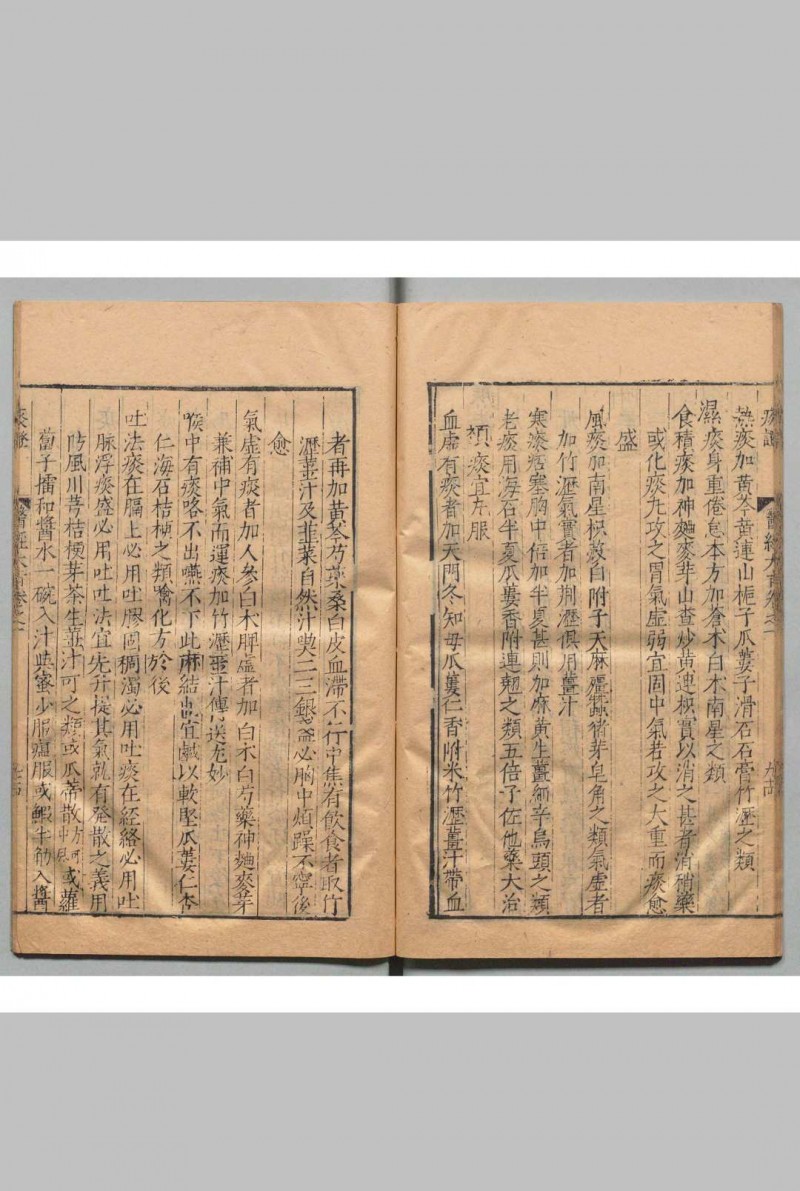 痰證
醫經大旨卷之一
熱痰加黃芩黃連山梔子瓜蔞子滑石石膏竹瀝之類
濕痰身重倦怠本方加蒼朮白朮南星之類
食積痰加神麯麥芽山查炒黃連枳實以消之甚者消稍藥
或化痰丸攻之胃氣虛弱宜固中氣若攻之大重而痰愈
盛
風痰加南星枳殼白附子天麻殭蠶猪芽皂角之類氣虛者
加竹瀝氣實者加荆瀝俱用薑汁
寒痰痞塞胸中倍加半夏甚則加麻黃生薑細辛烏頭之類
老痰用海石半夏瓜蔞香附連翹之類五倍子佐他藥大治
頑痰宜丸服
血虛有痰者加天門冬知母瓜蔞仁香附米竹瀝薑汁帶血
者再加黃芩芍藥桑白皮血滯不行中焦有飲食者取竹
瀝薑汁及韮菜自然汁㕑二三銀盞必胸中煩躁不寧後
愈
氣虛有痰者加人參白朮脾虛者加白朮白芍藥神麯麥芽
兼補中氣而運痰加竹瀝薑汁傳送尤妙
喉中有痰咯不出嚥不下此痳結也宜鹹以軟堅瓜蔞仁杏
仁海石桔梗之類噙化方於後
吐法痰在膈上必用吐膠固稠濁必用吐痰在經絡必用吐
脉浮痰盛必用吐吐法宜先升提其氣就有發散之義用
防風川芎桔梗芽茶生薑汁可之類或瓜蒂散方可中忌或蘿
蔔子擂和醬水一碗入汁㕑蜜少服溫服或蝦半觔入醬
醫經大旨卷之一
痰證